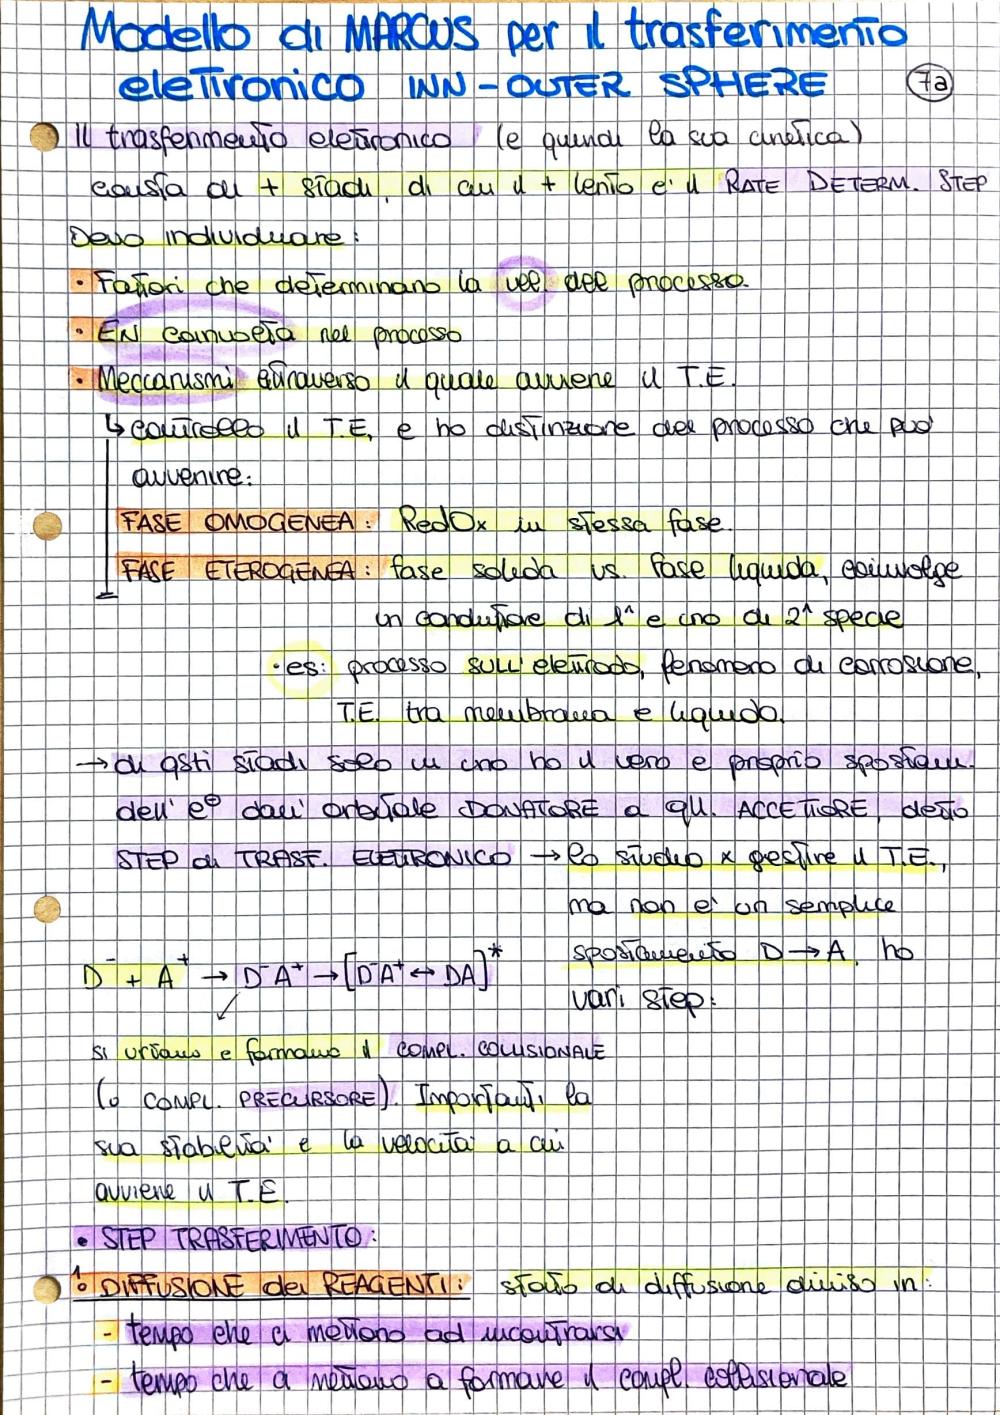 Modello di MARCUS per il trasferimento
elettronico INN-OUTER SPHERE
7a
Il trasferimento elettronico (e quindi la sua cinetica)
consta di + stadi, di cui il + lento e' il RATE DETERM. STEP
Devo individuare:
· Fattori che determinano la vel. del processo.
· EN coinvolta nel processo
· Meccanismi attraverso il quale avviene il T.E.
↳ controllo il T.E, e ho distinzione del processo che può
avvenire:
FASE OMOGENEA: RedOx in stessa fase.
FASE ETEROGENEA: fase solida vs. fase liquida, coinvolge
un conduttore di 1^ e uno di 2^ specie
·es: processo SULL'elettrodo, fenomeno di corrosione,
T.E. tra membrana e liquido.
→ di qsti stadi solo in uno ho il vero e proprio spostam.
dell' e⊖ dall' orbitale DONATORE a qll. ACCETTORE, detto
STEP di TRASF. ELETTRONICO → lo studio x gestire il T.E.,
ma non e' un semplice
spostamento D→A, ho
vari step:
D⁻ + A⁺ → D⁻A⁺ → [D⁻A⁺ ↔ DA]*
si urtano e formano il COMPL. COLLISIONALE
(o COMPL. PRECURSORE). Importanti la
sua stabilita' e la velocita' a cui
avviene il T.E.
• STEP TRASFERIMENTO:
1° DIFFUSIONE dei REAGENTI: stato di diffusione diviso in:
- tempo che ci mettono ad incontrarsi
- tempo che ci mettono a formare il compl. collisionale